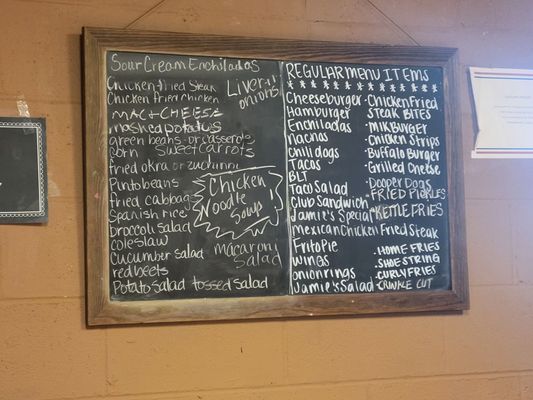 Sour Cream Enchiladas
Chicken Fried Steak
Chicken Fried Chicken
Liver & onions
MAC + CHEESE
mashed potatoes
green beans or casserole
corn sweet carrots
fried okra or zucchini
Pinto beans
fried cabbag
Spanish rice
broccoli salad
coleslaw
Cucumber salad
red beets
Potato salad tossed salad
Chicken
Noodle
Soup!
macaroni
Salad
REGULAR MENU ITEMS
Cheeseburger
Hamburger
Enchiladas
nachos
Chili dogs
Tacos
BLT
Taco Salad
Club Sandwich
Jamie's Special
Mexican Chicken Fried Steak
Frito Pie
wings
onion rings
Jamie's Salad
• Chicken Fried
STEAK BITES
• MIK BURGER
• Chicken Strips
• Buffalo Burger
• Grilled Cheese
• Dooper Dogs
• FRIED PICKLES
• KETTLE FRIES
• HOME FRIES
• SHOE STRING
• CURLY FRIES
• CRINKLE CUT